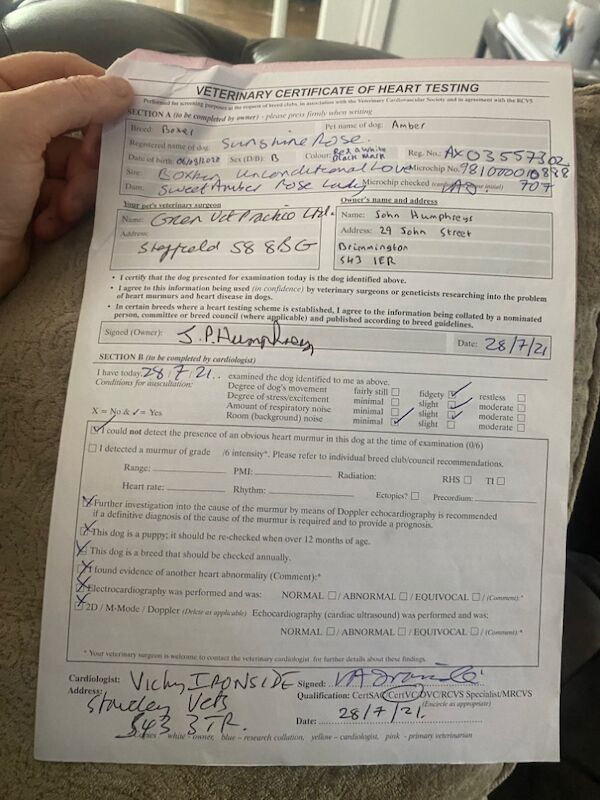 VETERINARY CERTIFICATE OF HEART TESTING
Performed for screening purposes at the request of breed clubs, in association with the Veterinary Cardiovascular Society and in agreement with the RCVS
SECTION A (to be completed by owner) - please press firmly when writing
Breed: Boxer Pet name of dog: Amber
Registered name of dog: Sunshine Rose.
Date of birth Sex (D/B): B Colour: Red & White Black Mark Reg. No.: AX03557302
Sire: Unconditional Love Microchip No.
Dam: Sweet Amber Rose Lady Microchip checked 707
Your pet's veterinary surgeon
Name: Green Vet Practice Ltd.
Address:
S8 8BG
Owner's name and address
Name: John Humphreys
Address: 29 John Street
Brimmington
S43 1ER
• I certify that the dog presented for examination today is the dog identified above.
• I agree to this information being used (in confidence) by veterinary surgeons or geneticists researching into the problem
of heart murmurs and heart disease in dogs.
• In certain breeds where a heart testing scheme is established, I agree to the information being collated by a nominated
person, committee or breed council (where applicable) and published according to breed guidelines.
Signed (Owner): J.P.Humphreys Date: 28/7/21
SECTION B (to be completed by cardiologist)
I have today 28/7/21.. examined the dog identified to me as above.
Conditions for auscultation: Degree of dog's movement fairly still ☐ fidgety ☑ restless ☐
Degree of stress/excitement minimal ☐ slight ☑ moderate ☐
Amount of respiratory noise minimal ☐ slight ☑ moderate ☐
X = No & ✓= Yes Room (background) noise minimal ☑ slight ☐ moderate ☐
☑ I could not detect the presence of an obvious heart murmur in this dog at the time of examination (0/6)
☐ I detected a murmur of grade /6 intensity*. Please refer to individual breed club/council recommendations.
Range: PMI: Radiation: RHS ☐ TI ☐
Heart rate: Rhythm: Ectopics? ☐ Precordium:
☒ Further investigation into the cause of the murmur by means of Doppler echocardiography is recommended
if a definitive diagnosis of the cause of the murmur is required and to provide a prognosis.
☒ This dog is a puppy; it should be re-checked when over 12 months of age.
☒ This dog is a breed that should be checked annually.
☒ I found evidence of another heart abnormality (Comment):*
☒ Electrocardiography was performed and was: NORMAL ☐ / ABNORMAL ☐ / EQUIVOCAL ☐ / (Comment):*
☒ 2D / M-Mode / Doppler (Delete as applicable) Echocardiography (cardiac ultrasound) was performed and was:
NORMAL ☐ / ABNORMAL ☐ / EQUIVOCAL ☐ / (Comment):*
* Your veterinary surgeon is welcome to contact the veterinary cardiologist for further details about these findings.
Cardiologist: Vicky IRONSIDE Signed:
Address: Vets Qualification: CertSAC/CertVC/DVC/RCVS Specialist/MRCVS
(Encircle as appropriate)
S43 3TR. Date: 28/7/21.
Copies white - owner, blue - research collation, yellow - cardiologist, pink - primary veterinarian